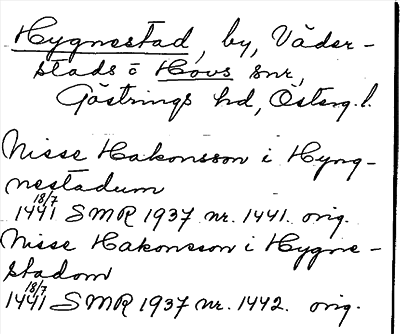 Hygnestad, by, Väder-
stads o Hovs snr,
Göstrings hd, Österg. l.
Nisse Hakonsson i Hyng-
nestadum
18/7
1441 SMR 1937 nr. 1441. orig.
Nisse Hakonsson i Hygne-
stadom
18/7
1441 SMR 1937 nr. 1442. orig.